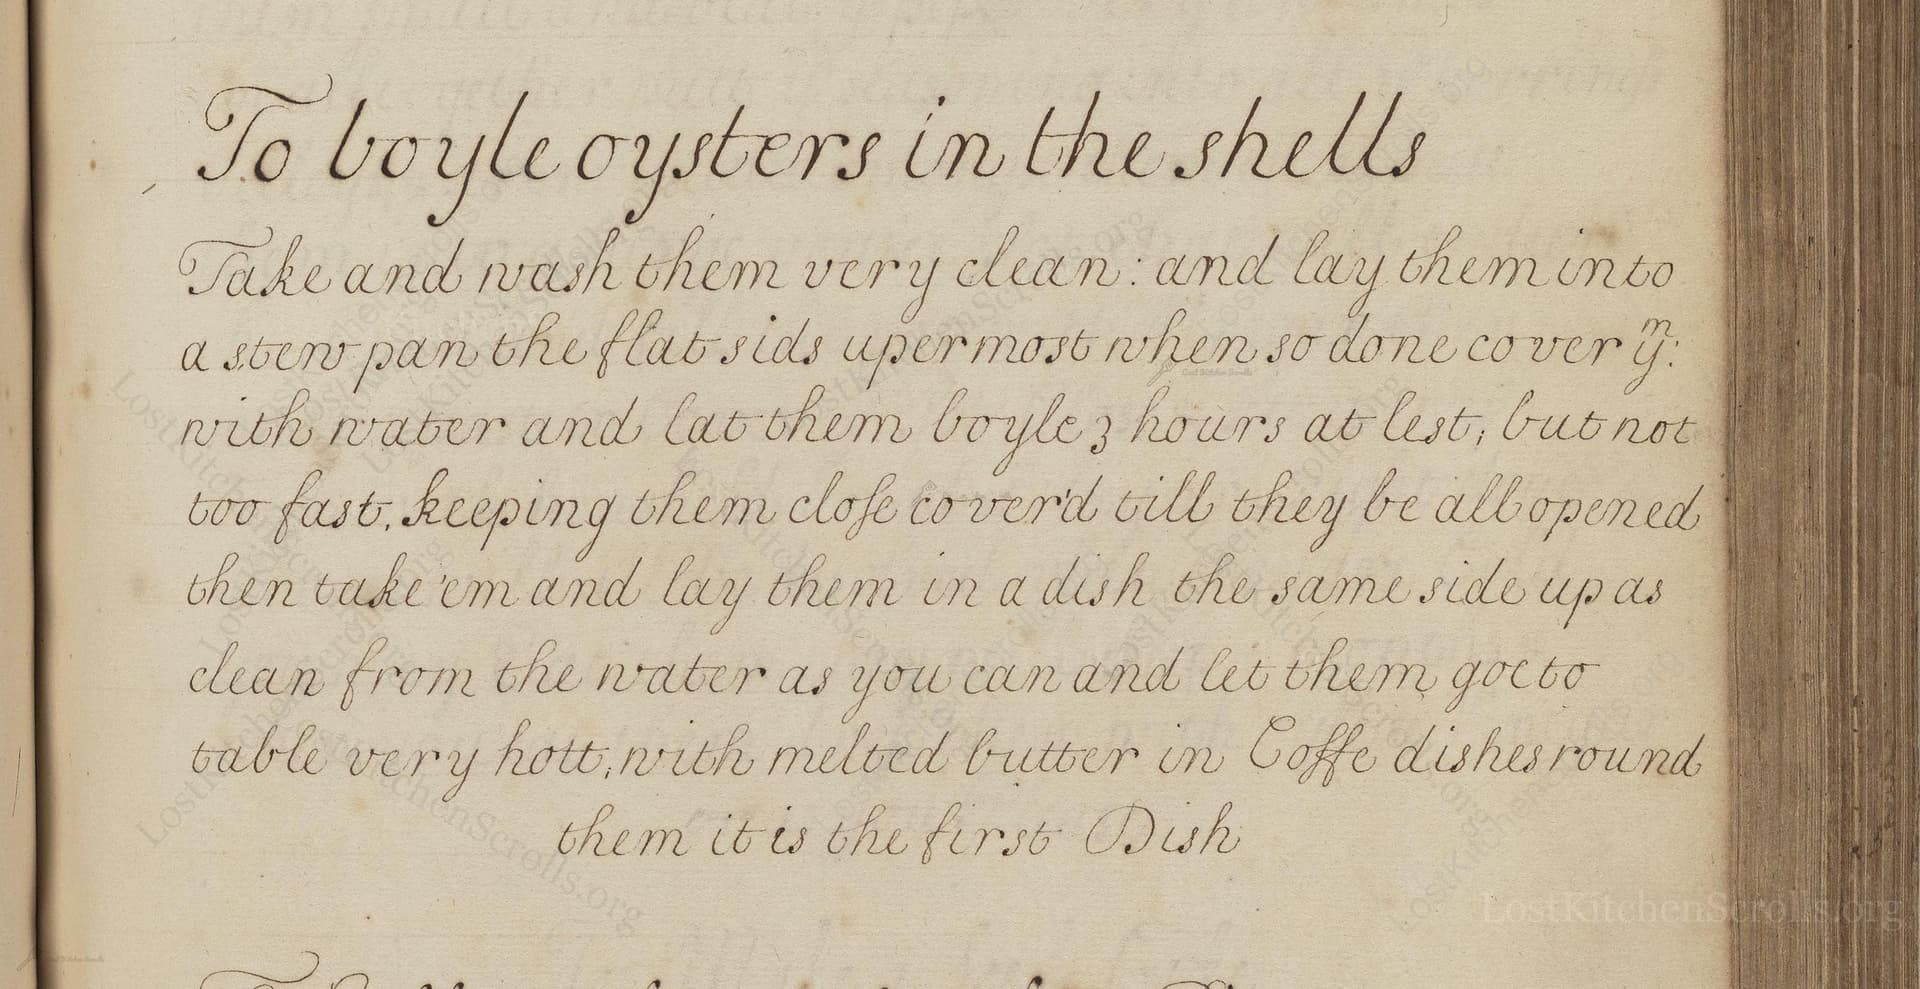 To boyle oysters in the shells
Take and wash them very clean: and lay them into
a stew pan the flat sids upermost when so done cover yͫ:
with water and lat them boyle 3 hours at lest; but not
too fast, keeping them cloſe cover'd till they be all opened
then take 'em and lay them in a dish the same side up as
clean from the water as you can and let them goe to
table very hott; with melted butter in Coffe dishes round
them it is the first Dish
LostKitchenScrolls.org